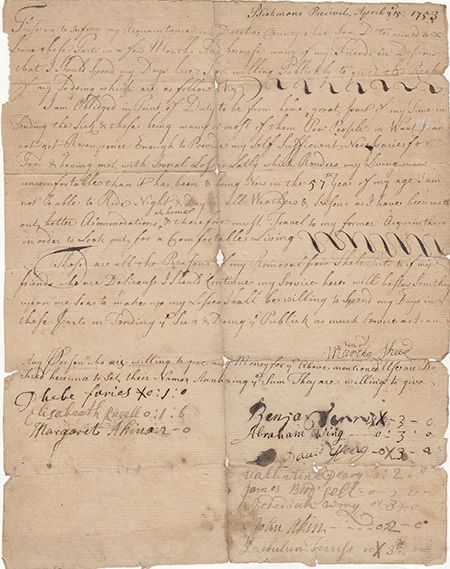 Beekmans Precinct, April ye 15, 1753
These are to Inform my Acquaintance in Dutches County that I am Determined to
Leave these Parts in a few Months And because many of my Friends are Desirous
that I should Spend my Days here I am willing Publickly to give the Reasons
of my so doing which are as follows
I am Obliged in Point of Duty to be from home a great Part of my Time in
Tending the Sick & those being many of most of them Poor People in Want I am
not get Recompence Enough to Provide my Self Sufficient Necessaries for
Food & having met with Several Losses Lately which Renders my Living more
uncomfortable than it has been & being Now in the 57th Year of my age I am
not so able to Ride Night & Day in all Weathers & Seasons as I have been with
out better Acommodations at home & therefore must Travel to my former Acquaintance
in order to Look out for a Comfortable Living
These are all the Reasons of my Removal from these Parts & if my
friends who are Desirous I Should Continue my Service here will bestow Something
upon me so as to make up my Losses I shall be willing to Spend my Days in
these Parts in Tending ye Sick & Doing ye Publick as much Service as I can
Martha
Any Person who are willing to give any Money for ye Above mentioned Use are De-
Sired hereunto to Set their Names Annexing ye Sum They are willing to give
Phebe 0:1:0
Elisabeath 0:1:6
Margaret Akin 0:2-0
Benja Ferris X-3-0
Abraham Wing 0:3:0
David 0X3-0
Vallentine 0:2:0
James 0
Jedediah Wing X3 0
John Akin 0 2-0
Zaebulon Ferriss 0X3